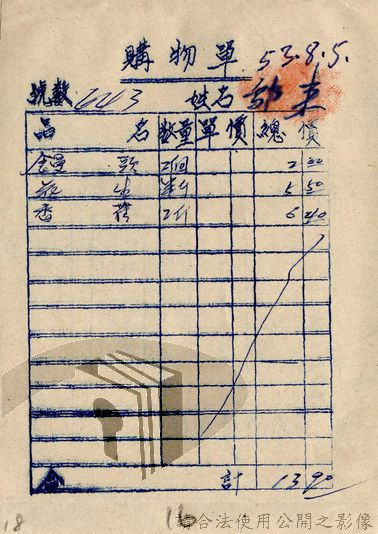 購物單 53.8.5.
號數 6413 姓名
品名 數量 單價 總價
饅頭 2個 2 00
半斤 5 50
香蕉 2斤 6 40
合計 13 90
18
16
合法使用公開之影像